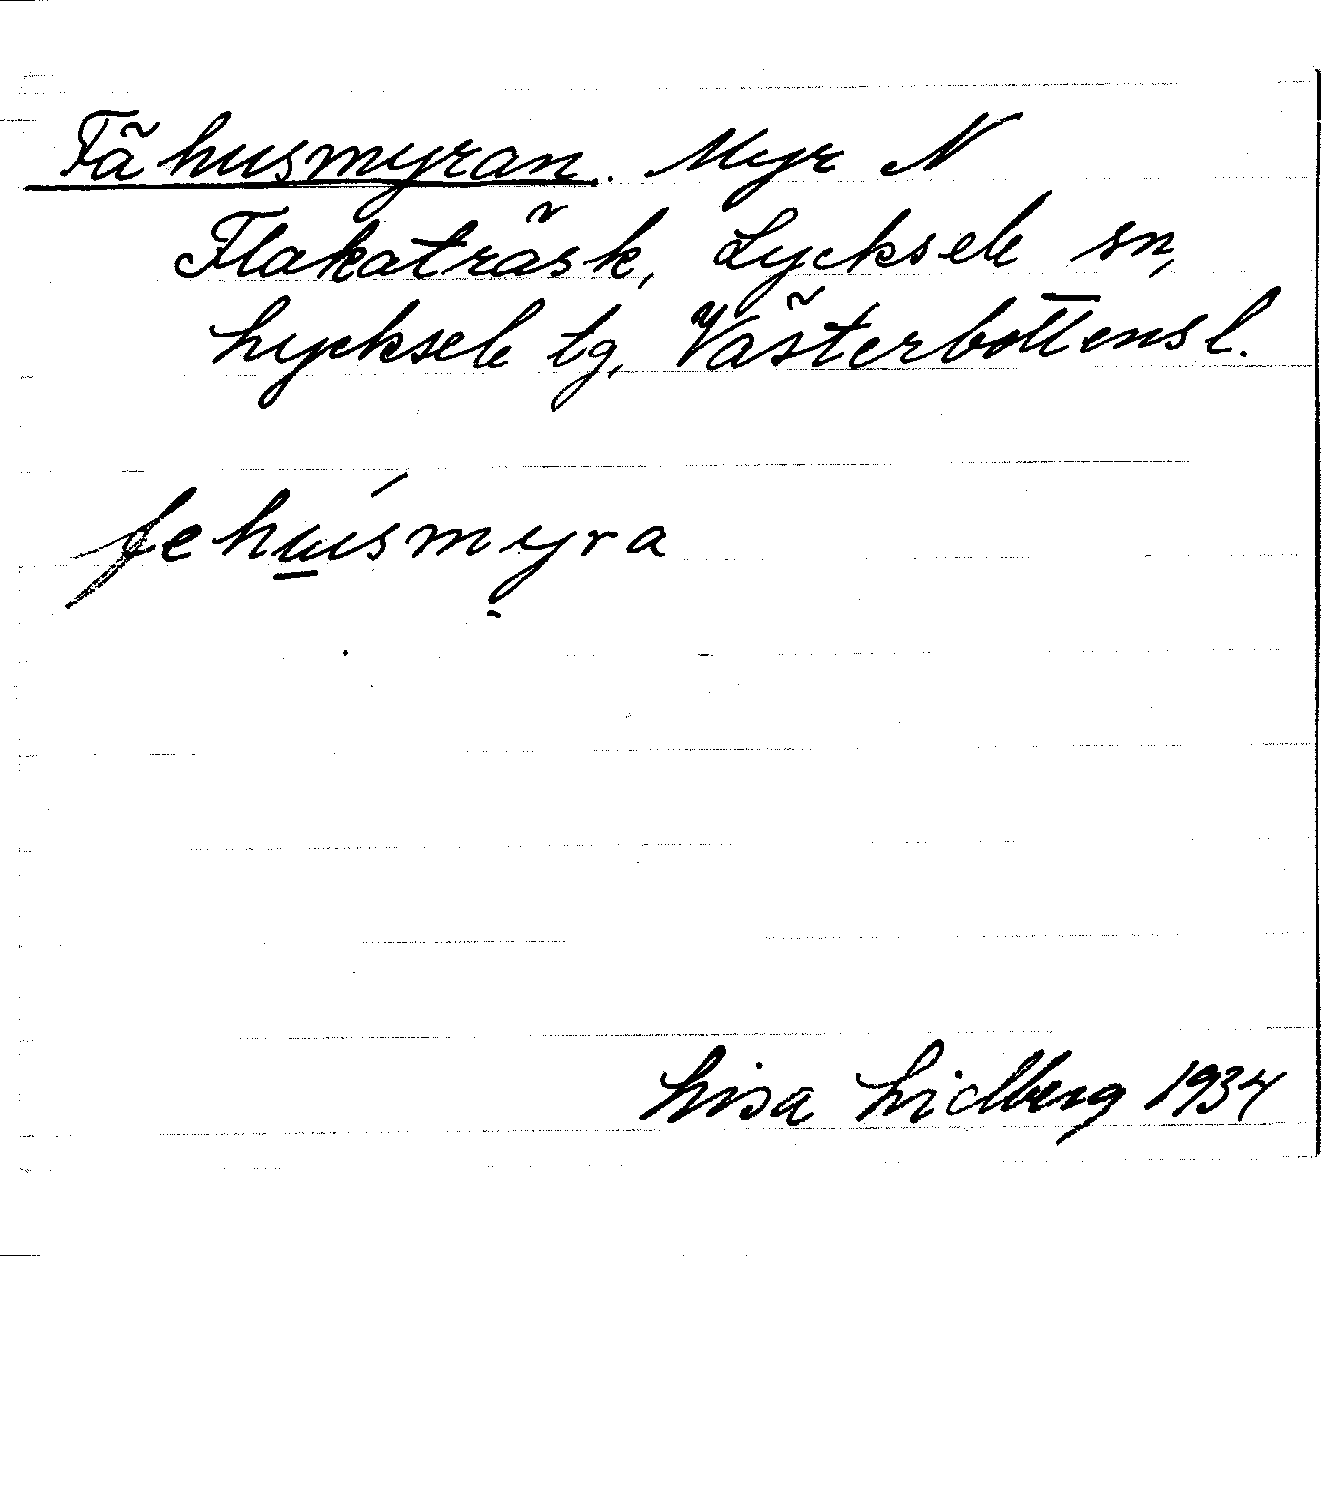 Fähusmyran. Myr N
Flakaträsk, Lycksele sn,
Lycksele tg, Västerbottens l.
fehu̲śmyra
Lisa Lidberg 1934